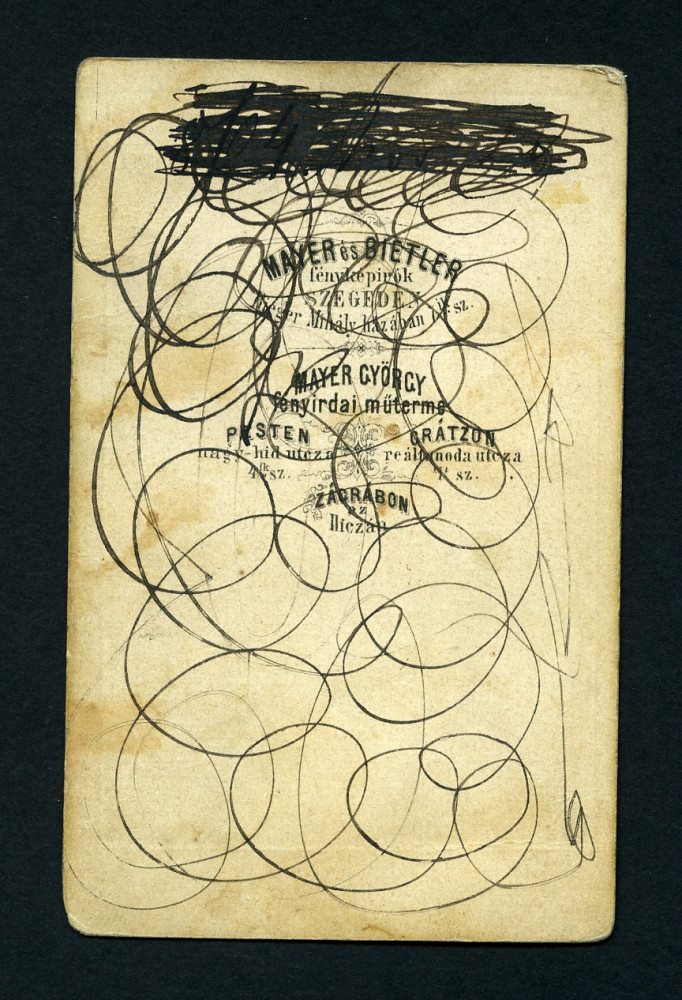 MAYER és DIETLER
fényképirók
SZEGEDEN
Mihály házában sz.
MAYER GYÖRGY
fényirdai műterme
PESTEN
nagy-híd utcza
4ik sz.
GRÁTZON
reáltanoda utcza
7ik sz.
ZÁGRÁBON
az